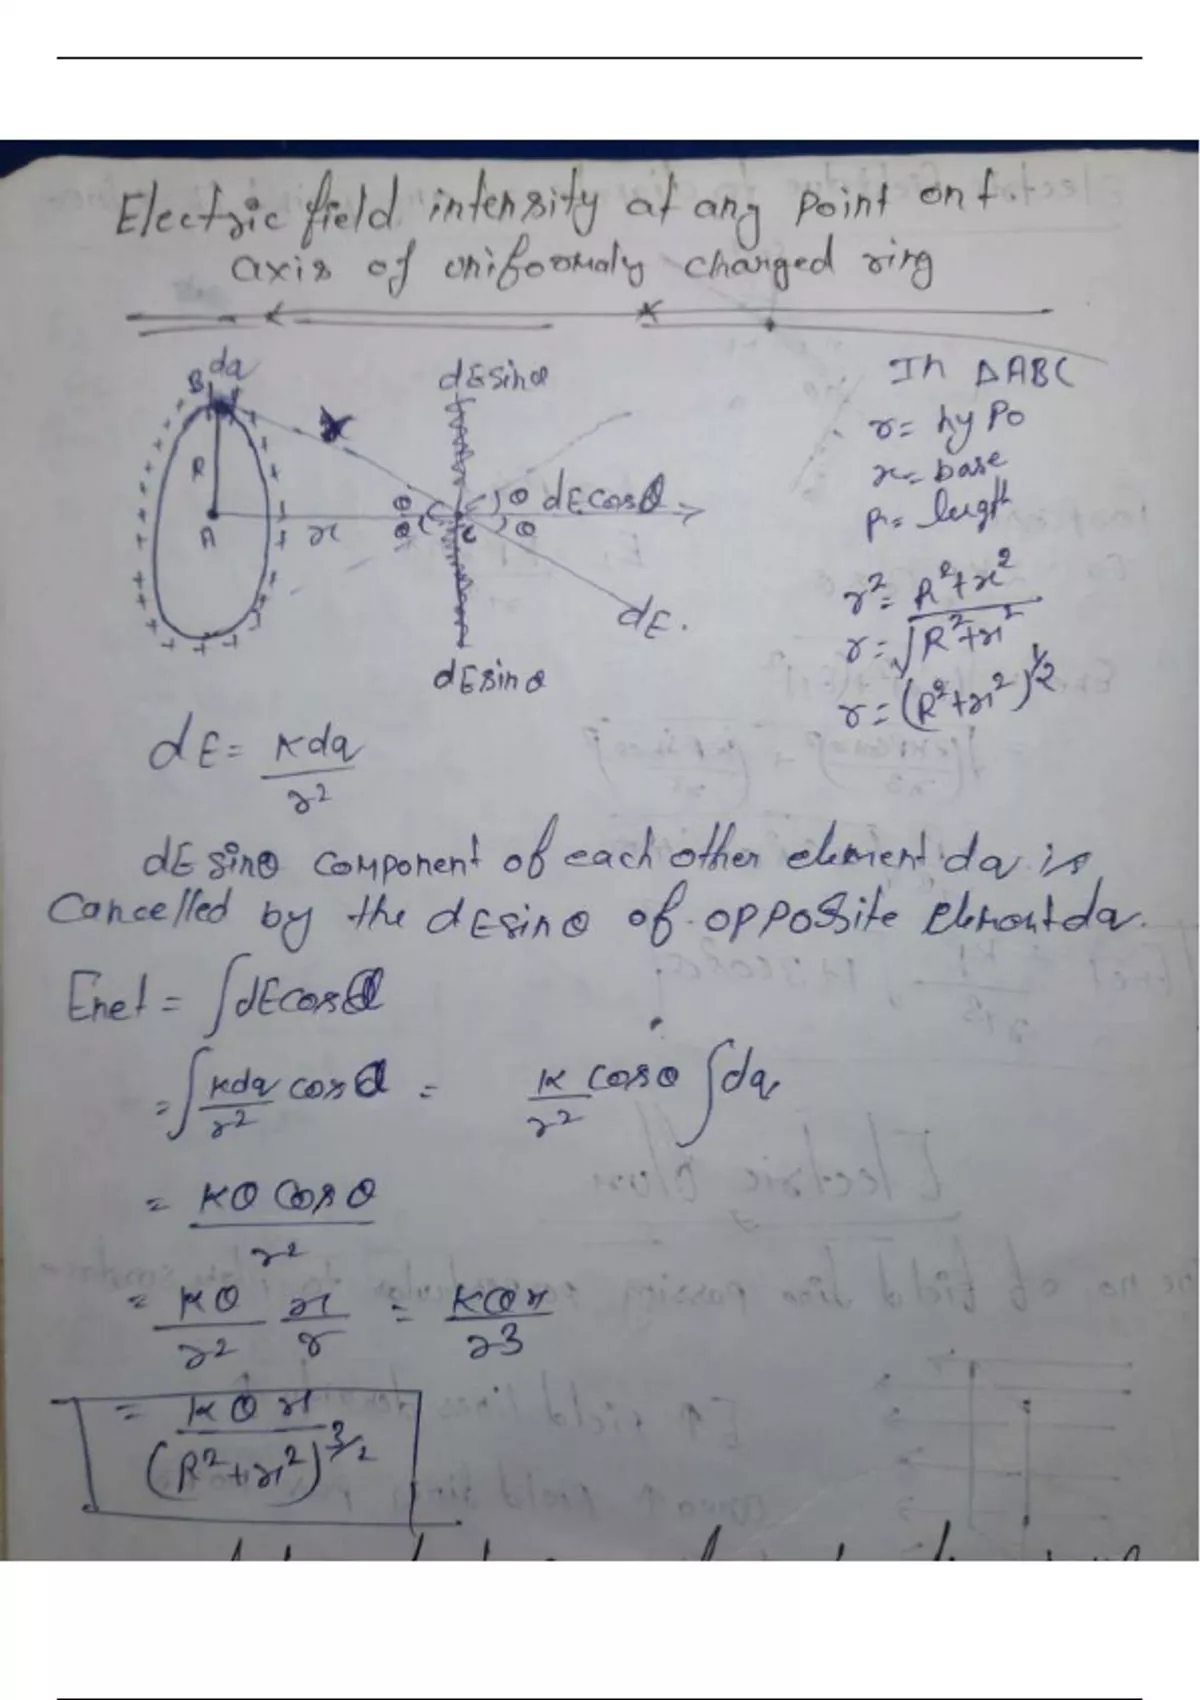 Electric field intensity at any point on t.
axis of uniformaly charged ring
dq
B
dEsinθ
R
A
x
θ
θ
C
θ
θ
dEcosθ
dE.
dEsinθ
In ΔABC
r = hypo
x = base
R = length
r² = R²+x²
r = √R²+x²
r = (R²+x²)^1/2
dE = Kdq/r²
dEsinθ component of each other element dq is
cancelled by the dEsinθ of opposite element dq.
Enet = ∫dEcosθ
= ∫Kdq/r² cosθ = K/r² cosθ ∫dq
= KQ cosθ/r²
= KQ/r² x/r = KQx/r3
= KQx/(R²+x²)^3/2